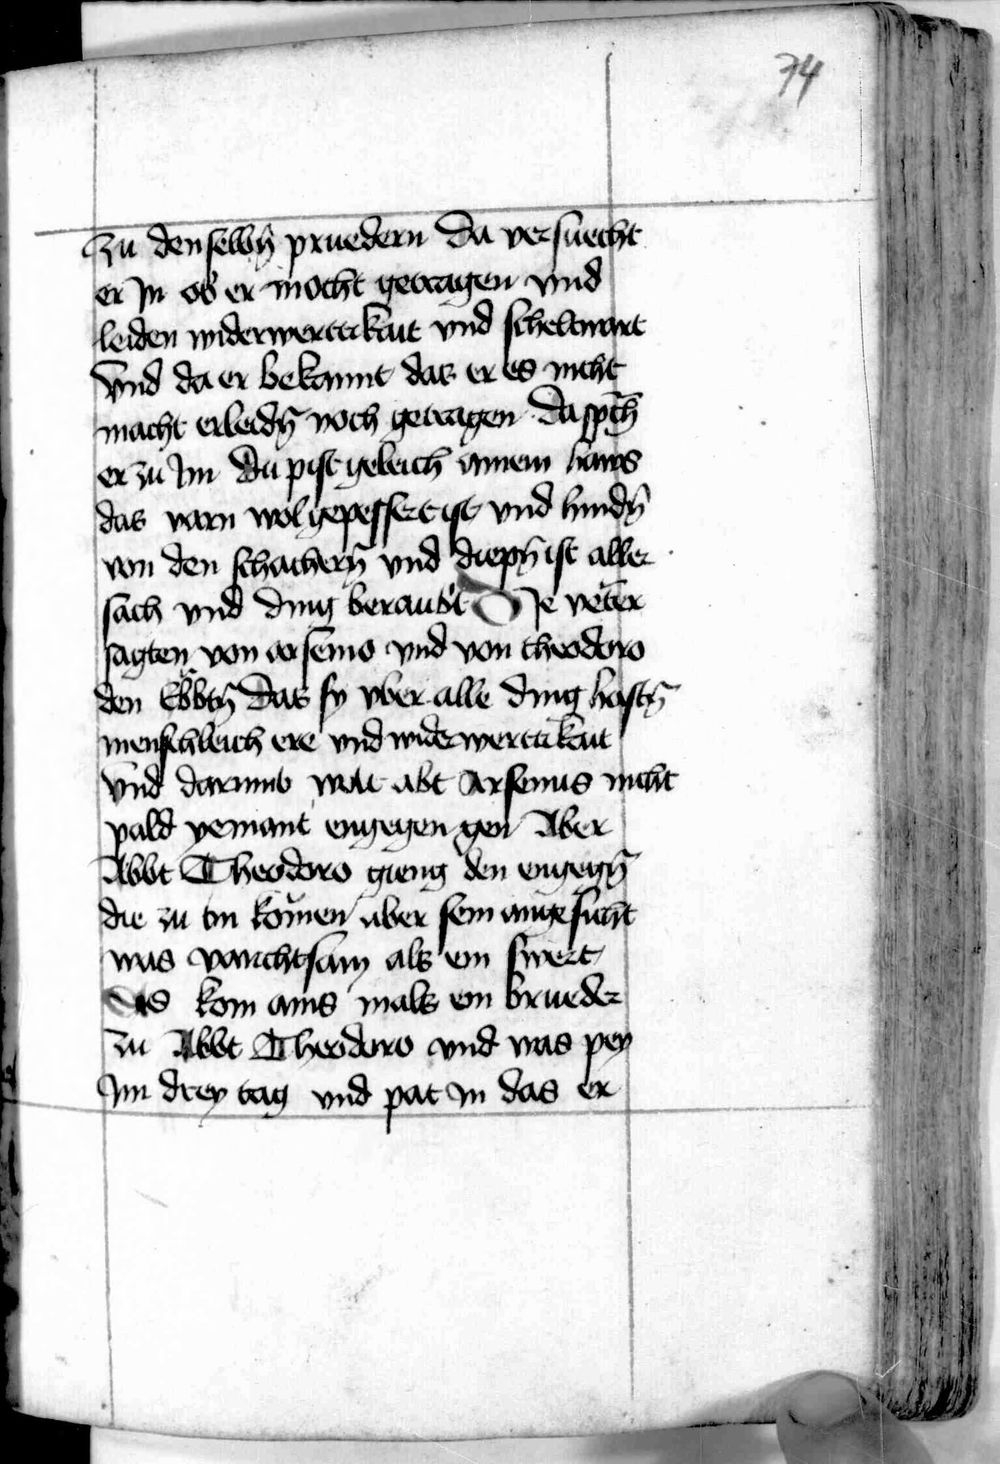 74
zu denselbn̄ pruedern Da versuecht
er Jn ob er mocht getragen vnd
leiden widerwerttikait vnd scheltwart
Vnd da er bekannt das er es nicht
macht erleidn̄ noch getragen Da sp̄ch
er zu Jm Du pist geleich ainem haws
das varn wol gepessert ist vnd hindn̄
von den schachern̄ vnd diepn̄ ist aller
sach vnd ding beraubt DJe veter
sagten von arsenio vnd von theodoro
den Ebbtn̄ Das sy vber alle ding hastn̄
menschleich ere vnd widerwerttikait
Vnd darumb wolt abt Arsenius nicht
pald yemant engegen gen Aber
Abbt Theodoro gieng den engegn̄
die zu im komen aber sein angesicht
was varchtsam als ein swert
Es kom ains mals ein brueder
zu Abbt Theodoro vnd was pey
Jm drey tag vnd pat Jn das er